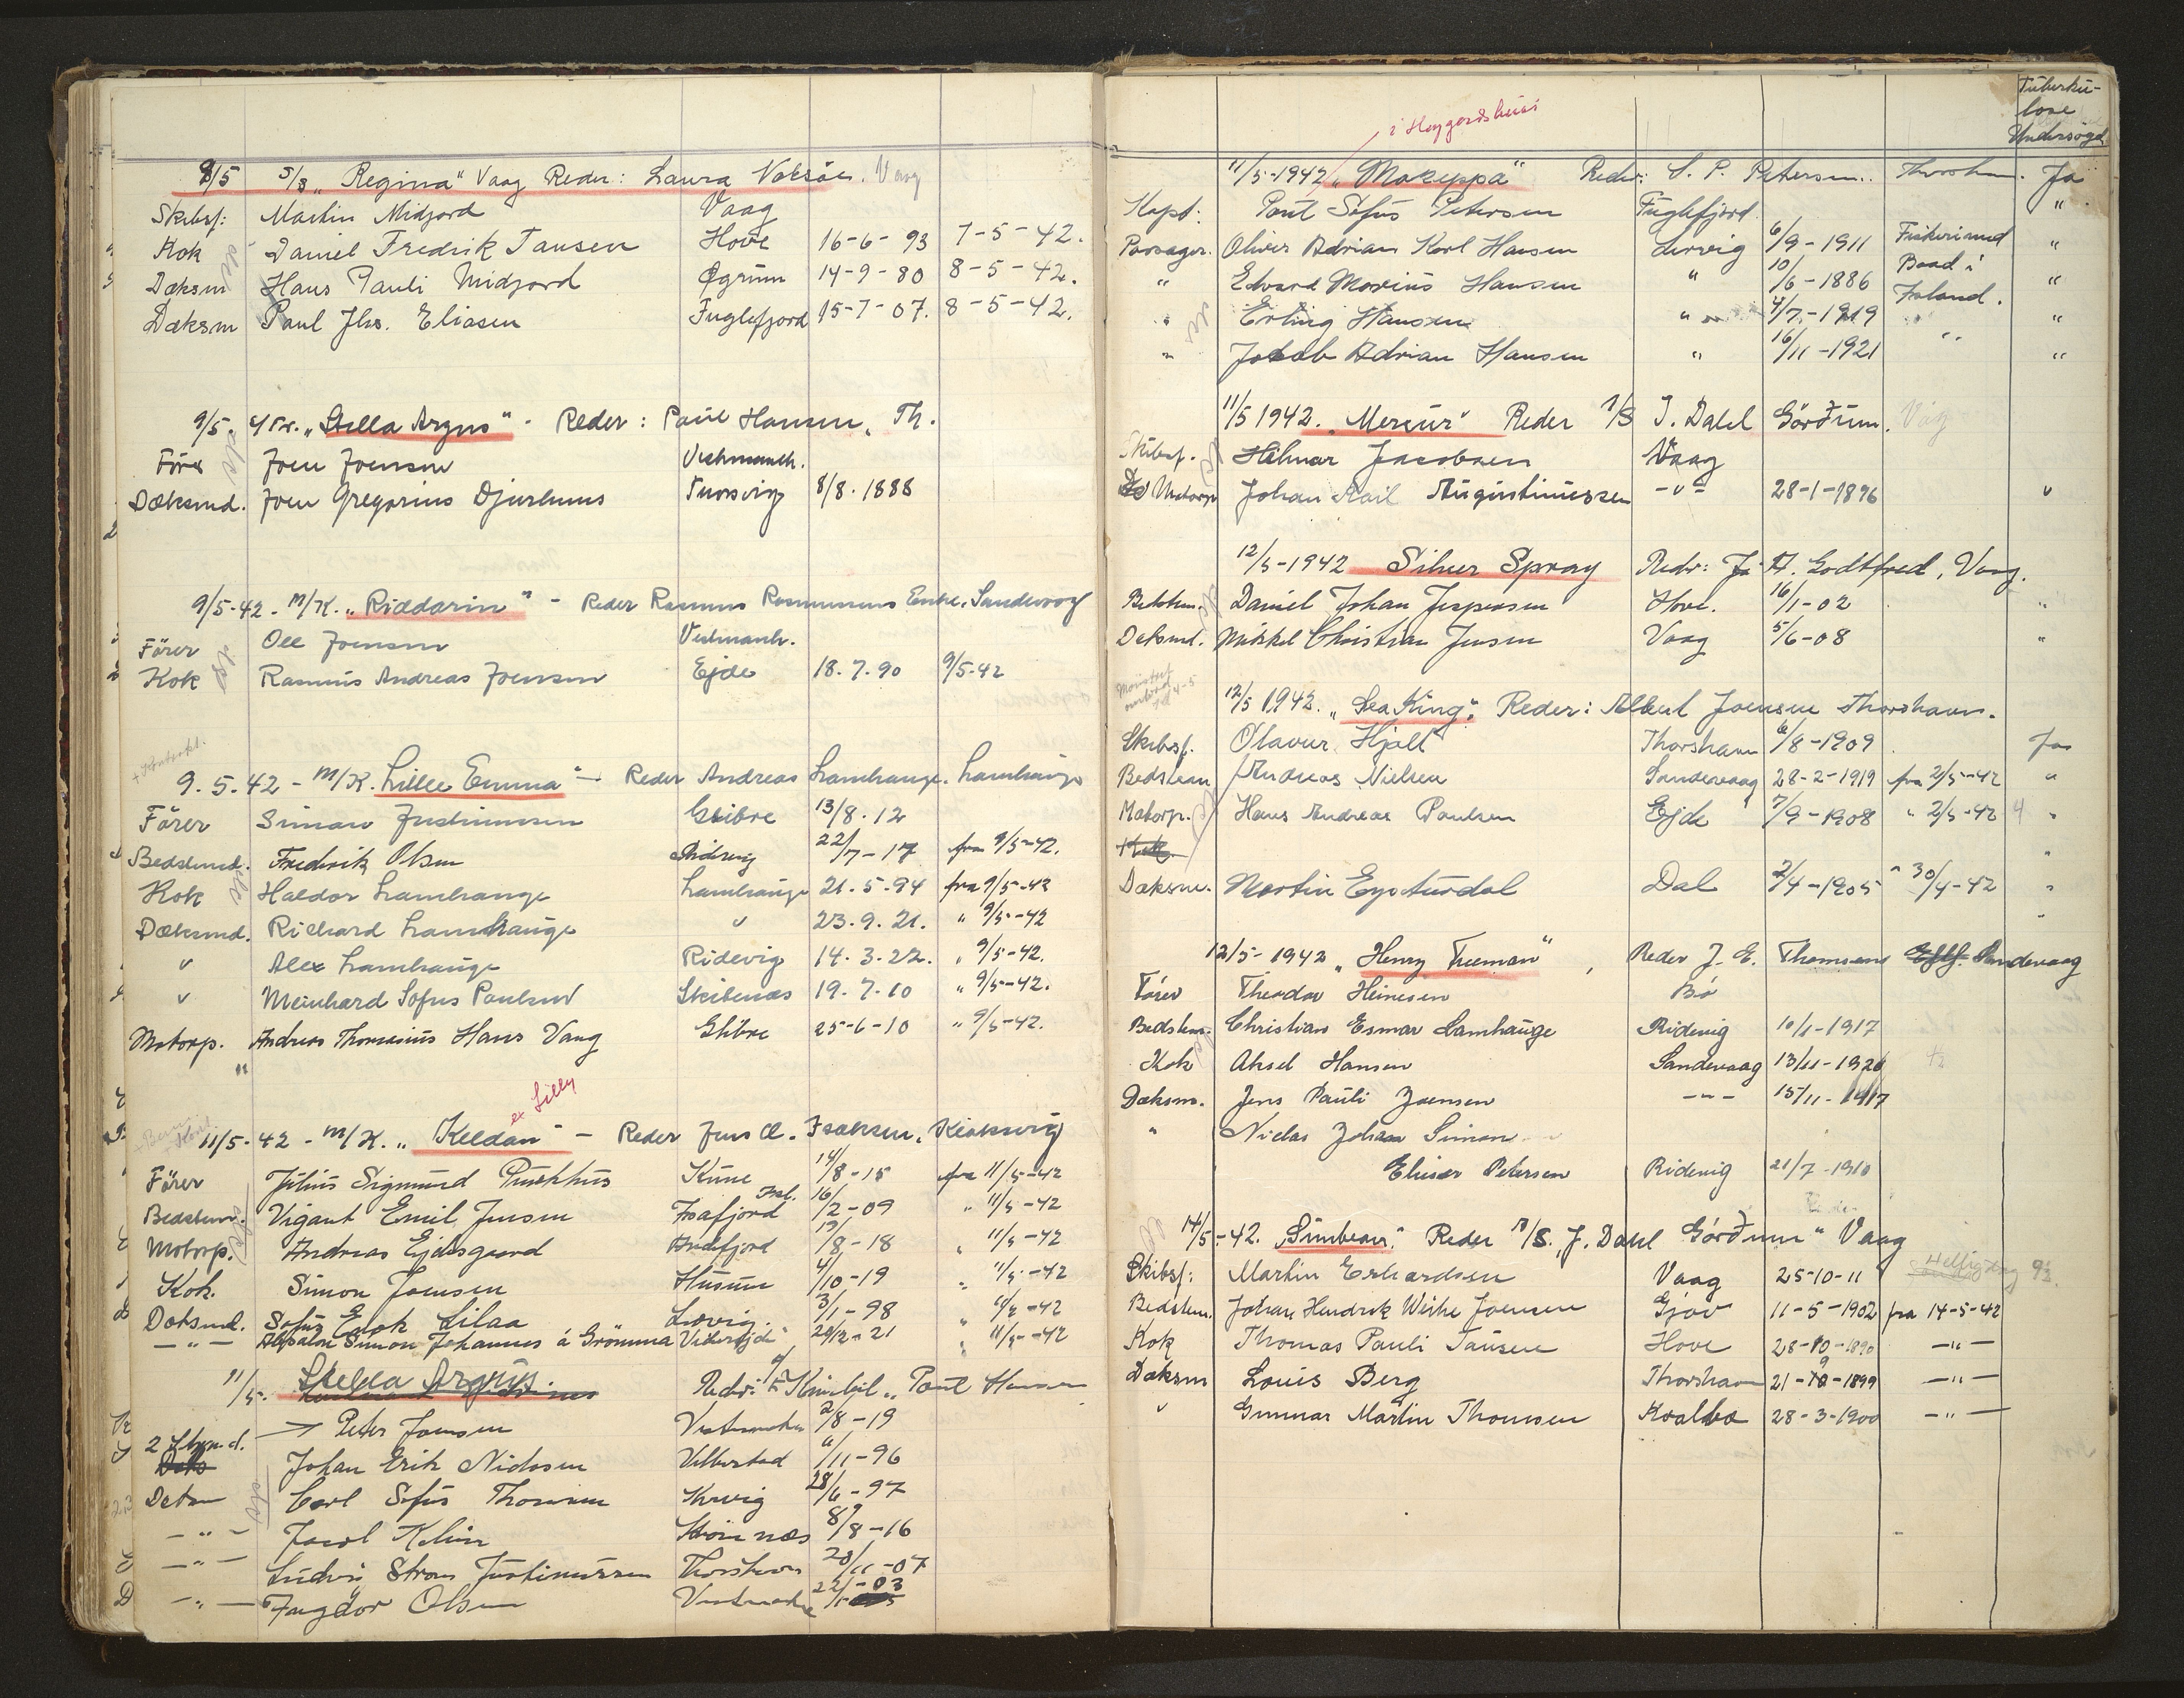 8/5 S/S „Regina“ Vaag Reder: Laura Vaag
Skibsf: Martin Midjord Vaag
Kok Daniel Fredrik Tausen Hove 16-6-93 7-5-42.
Dæksm Hans Pauli Midjord Øgrum 14-9-80 8-5-42.
Dæksm Paul Jhs. Eliasen Fuglefjord 15-7-07. 8-5-42.
9/5. „Stella Argus“ - Reder: Paul Hansen, Th.
Förer Joen Joensen Vestmanh.
Dæksmd. Joen Gregorius Djurhuus 8/8. 1888
9/5-42 - M/K. „Riddarin“ - Reder Rasmus Rasmussens Enke, Sandevaag
Förer Ole Joensen Vestmanh.
Kok Rasmus Andreas Joensen Ejde 18.7.90 9/5-42
9.5.42 - M/K. „Lille Emma“ - Reder Andreas Lamhauge. Lamhauge
Förer Simon Justinussen Glibre 13/8.12
Bedstmd. Fredrik Olsen 22/7-17 fra 9/5-42.
Kok Haldor Lamhauge Lamhauge 21.5.94 fra 9/5-42
Dæksmd. Richard Lamhauge " 23.9.21. " 9/5-42
" Alex Lamhauge Ridevig 14.3.22. " 9/5-42.
" Meinhard Sofus Poulsen Skibenæs 19.7.10 " 9/5-42.
Motorp. Andreas Thomasius Hans Vang Glibre 25-6-10 " 9/5-42.
"
ex Lilly
11/5-42 - M/K. „Keldan“ - Reder Jens Cl. Isaksen, Klaksvig
Förer Julius Sigmund Kune 14/8-15 fra 11/5-42
Bedstm. Vigant Emil Jensen Isafjord Isl. 16/2-09 " 11/5-42
Motorp. Andreas Ejdesgaard Andefjord 19/8-18 " 11/5-42
Kok. Simon Joensen Husum 4/10-19 " 11/5-42
Doksmd. Sofus Enok Lilaa Lervig. 3/1-98 " 11/5-42
-"- Absalon Simon Johannes á Grömma Viderejde 29/12-21 " 11/5-42
11/5. Stella Argus. Reder: Poul Hansen
2 Styrmd. Peter Joensen 2/8-19
Johan Erik Nidosen Velbestad 11/11-96
Carl Sofus Thomsen 28/6-97
-"- 8/8-16
-"- Ludvi Strom Justinussen Thorshavn 20/11-07
-"- Olsen 22/1-03
Tuberku-
lose
Undersögt
i Høygardshusi
11/5-1942 „Mozeppa“ Reder: S. P. Petersen. Thorshn. Ja
Kapt: Poul Sofus Petersen Fuglefjord. "
Passager. Oliver Adrian Karl Hansen Lervig 6/9-1911 Fiskerimed "
" Edvard Marius Hansen " 10/6-1886 Baad i "
" Erling Hansen " 4/7-1919 Island. "
" Jakob Adrian Hansen " 16/11-1921 " "
11/5 1942. „Mercur“ Reder A/S J. Dahl Görðum. Vág
Skibsf. Hilmar Jacobsen Vaag
Motorp Johan Augustinussen -"- 28-1-1896 "
12/5-1942 Silver Spray Reder: A. Godtfred, Vaag.
Bedstem. Daniel Johan Jespersen Hove. 16/1-02 "
Daksmd. Mikkel Christian Jensen Vaag 5/6-08 "
12/5 1942. „Sea King“. Reder: Albert Joensen Thorshavn.
Skibsf. Olavur Hjalt Thorshavn 6/8-1909 Ja
Bedstem Andreas Nielsen Sandevaag 28-2-1919 fra 2/5-42 "
Motorp. Hans Andreas Poulsen Ejde 7/9-1908 " 2/5-42 "
Dæksm. Martin Eysturdal Dal 2/4-1905 " 30/4-42 "
12/5-1942 „Henry Freeman“, Reder J. E. Thomsens Sandevaag
Förer Theodor Heinesen Bö
Bedstem. Christian Esmar Lamhauge Ridevig 10/1-1917
Kok Aksel Hansen Sandevaag 13/11-1926
Dæksm. Jens Pauli Joensen -"- 15/11-1917
" Niclas Johan Simon
Elieser Petersen Ridevig 21/7-1910
14/5-42. „Sunbeam“. Reder A/S. J. Dahl Görðum“ Vaag
Skibsf: Martin Erhardsen Vaag 25-10-11
Bedstem. Johan Hendrik Weihe Joensen Gjov 11-5-1902 fra 14-5-42
Kok Thomas Pauli Tausen Hove 28-10-1890 -"-
Dæksm Louis Berg Thorshavn 21-9-1899 -"-
" Gunnar Martin Thomsen Kvalbø 28-3-1900 -"-